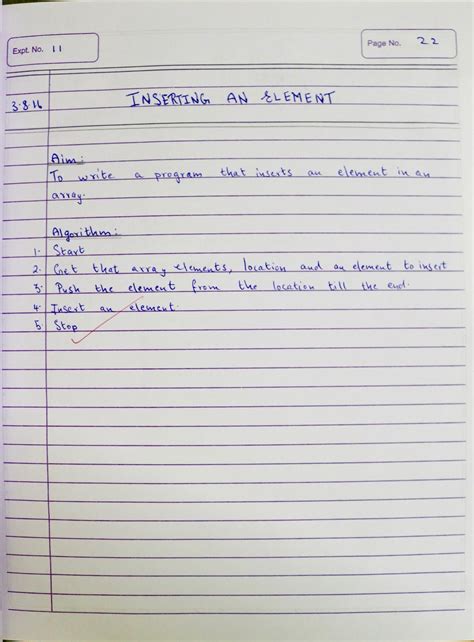 Expt. No. 11
Page No. 22
3.8.16 INSERTING AN ELEMENT
Aim:
To write a program that inserts an element in an
array.
Algorithm:
1. Start
2. Get that array elements, location and an element to insert
3. Push the element from the location till the end.
4. Insert an element.
5. Stop